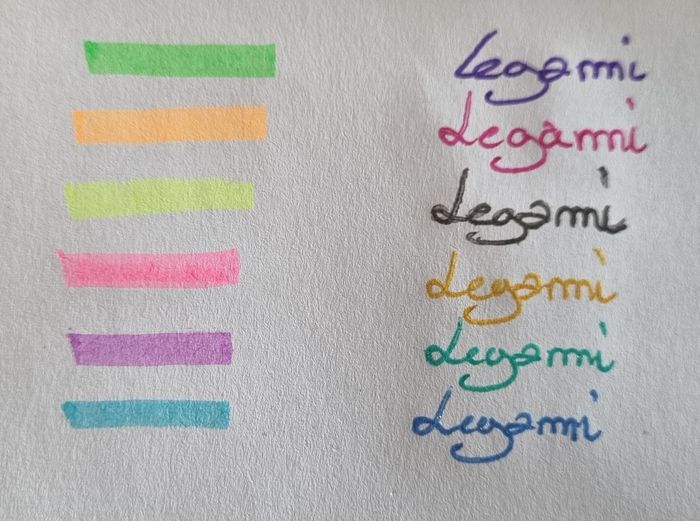 Legami
Legami
Legami
Legami
Legami
Legami